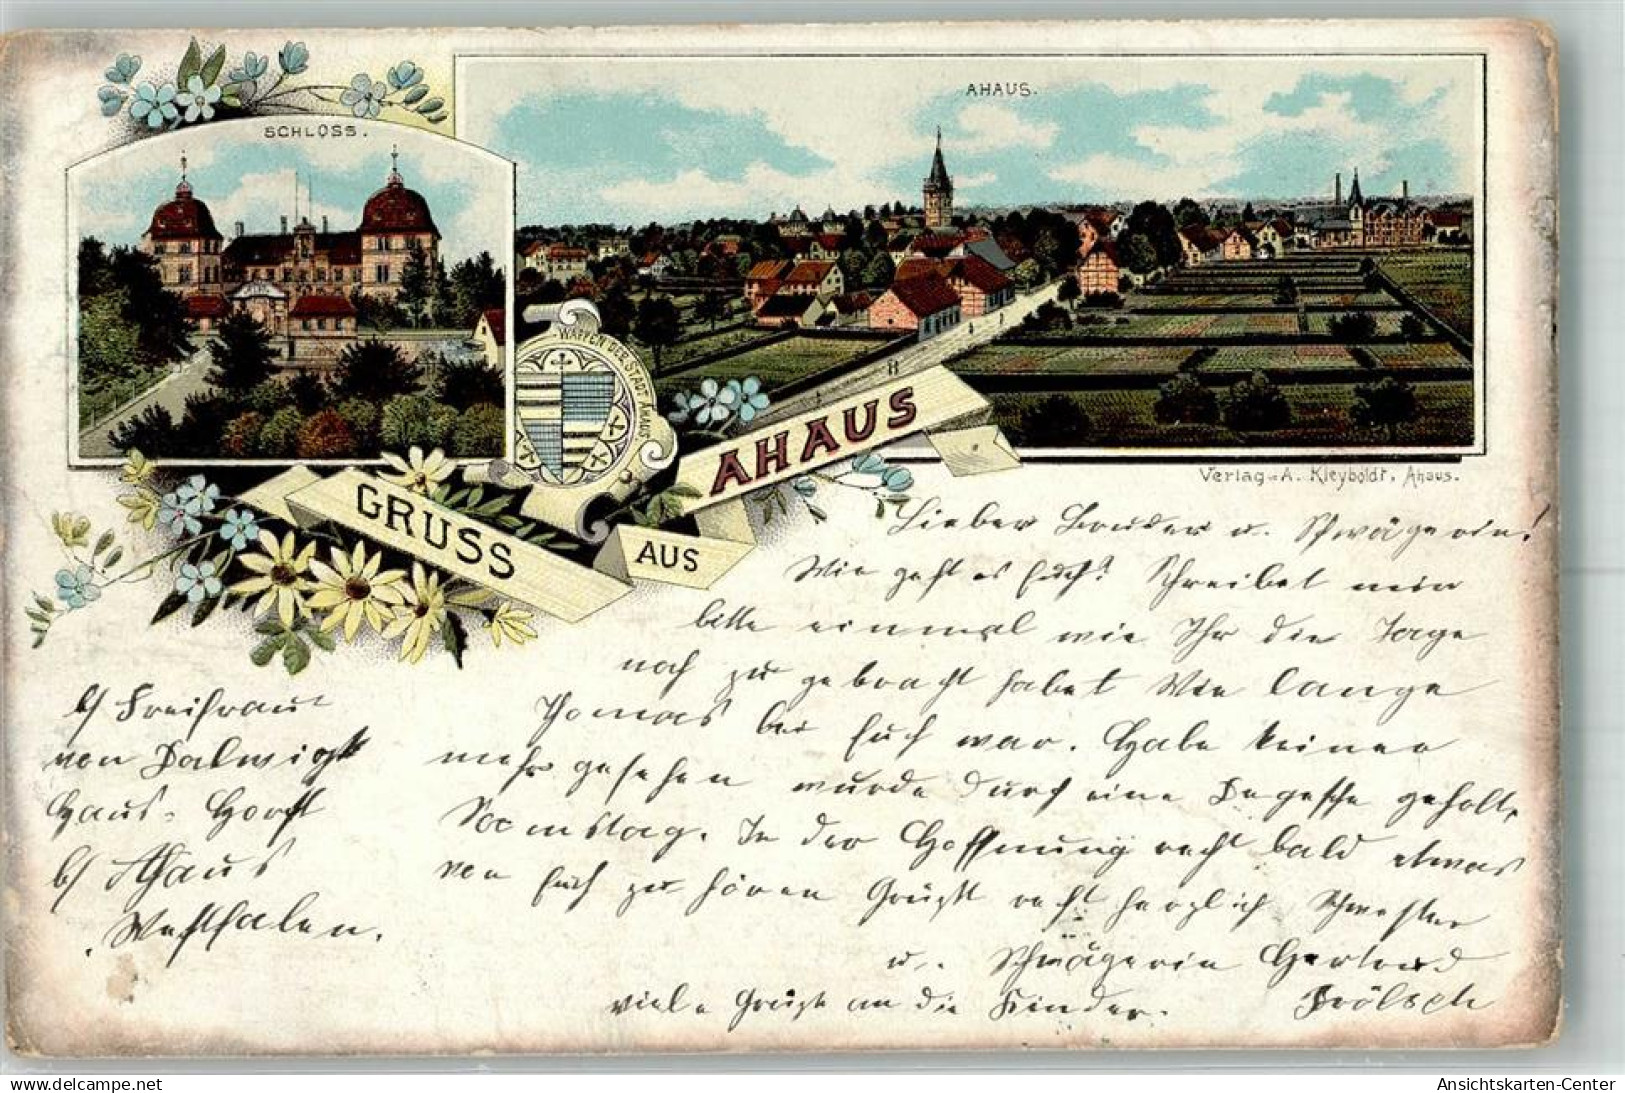 SCHLOSS.
AHAUS.
WAPPEN DER STADT AHAUS
GRUSS
AUS
AHAUS
Verlag A. Kleyboldt, Ahaus.
Lieber Bruder u. Schwägerin!
Wie geht es Euch? Schreibet mir
bitte einmal wie Ihr die Tage
noch zu gebracht habet Wie lange
Thomas bei Euch war. Habe keinen
mehr gesehen wurde durch eine geholt,
Samstag. In der Hoffnung recht bald etwas
von Euch zu hören Grüßt recht herzlich Schwester
u. Schwägerin Gertrud
viele Grüße an die Kinder. Brölsch
b/ Freifrau
von Dalwigk
Haus-Horst
b/ Ahaus
Westfalen.
© www.oldthing.de
Ansichtskarten-Center